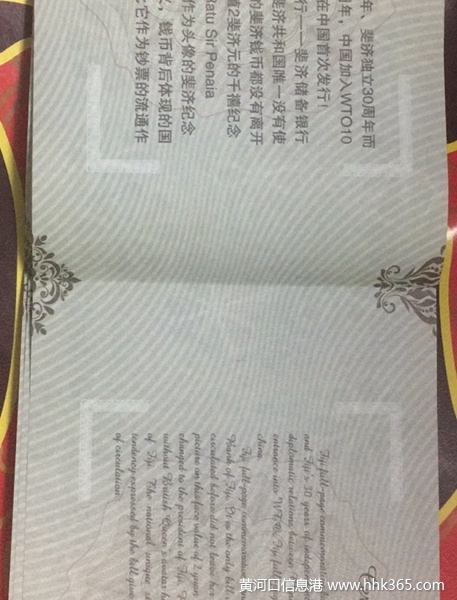 年、斐济独立30周年而
周年，中国加入WTO10
在中国首次发行！
行——斐济储备银行
斐济共和国唯一没有使
的斐济钱币都没有离开
值2斐济元的千禧纪念
Ratu Sir Penaia
作为头像的斐济纪念
义，钱币背后体现的国
它作为钞票的流通作
Fiji full-page commemorative
and Fiji's 30 years of indepen
diplomatic relations between
entrance into WTO, Fiji full
china.
Fiji full-page commemorative
Bank of Fiji. It is the only bill
circulated before did not leave her
picture on this face value of 2 yuan
changed to the president of Fiji
without British Queen's avatar h
of Fiji. The national unique s
tendency expressed by the bill give
of circulation.
黄河口信息港 www.hhk365.com